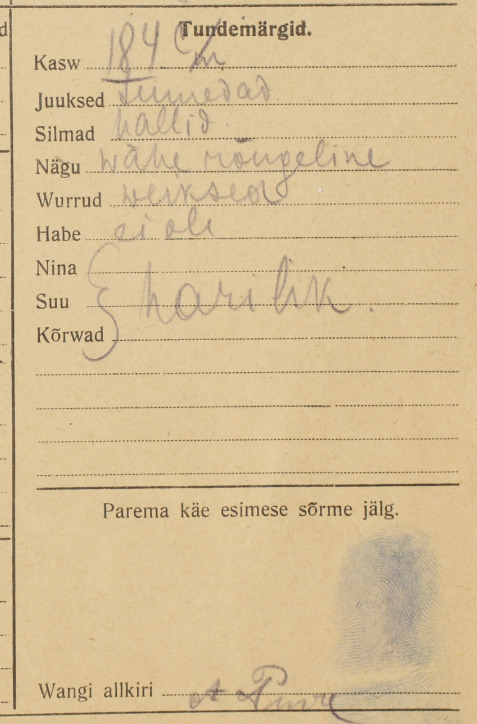 Tundemärgid.
Kasw 184 c/m
Juuksed tumedad
Silmad hallid
Nägu wähe rõugeline
Wurrud weiksed
Habe ei ole
Nina
Suu harilik.
Kõrwad
Parema käe esimese sõrme jälg.
Wangi allkiri A